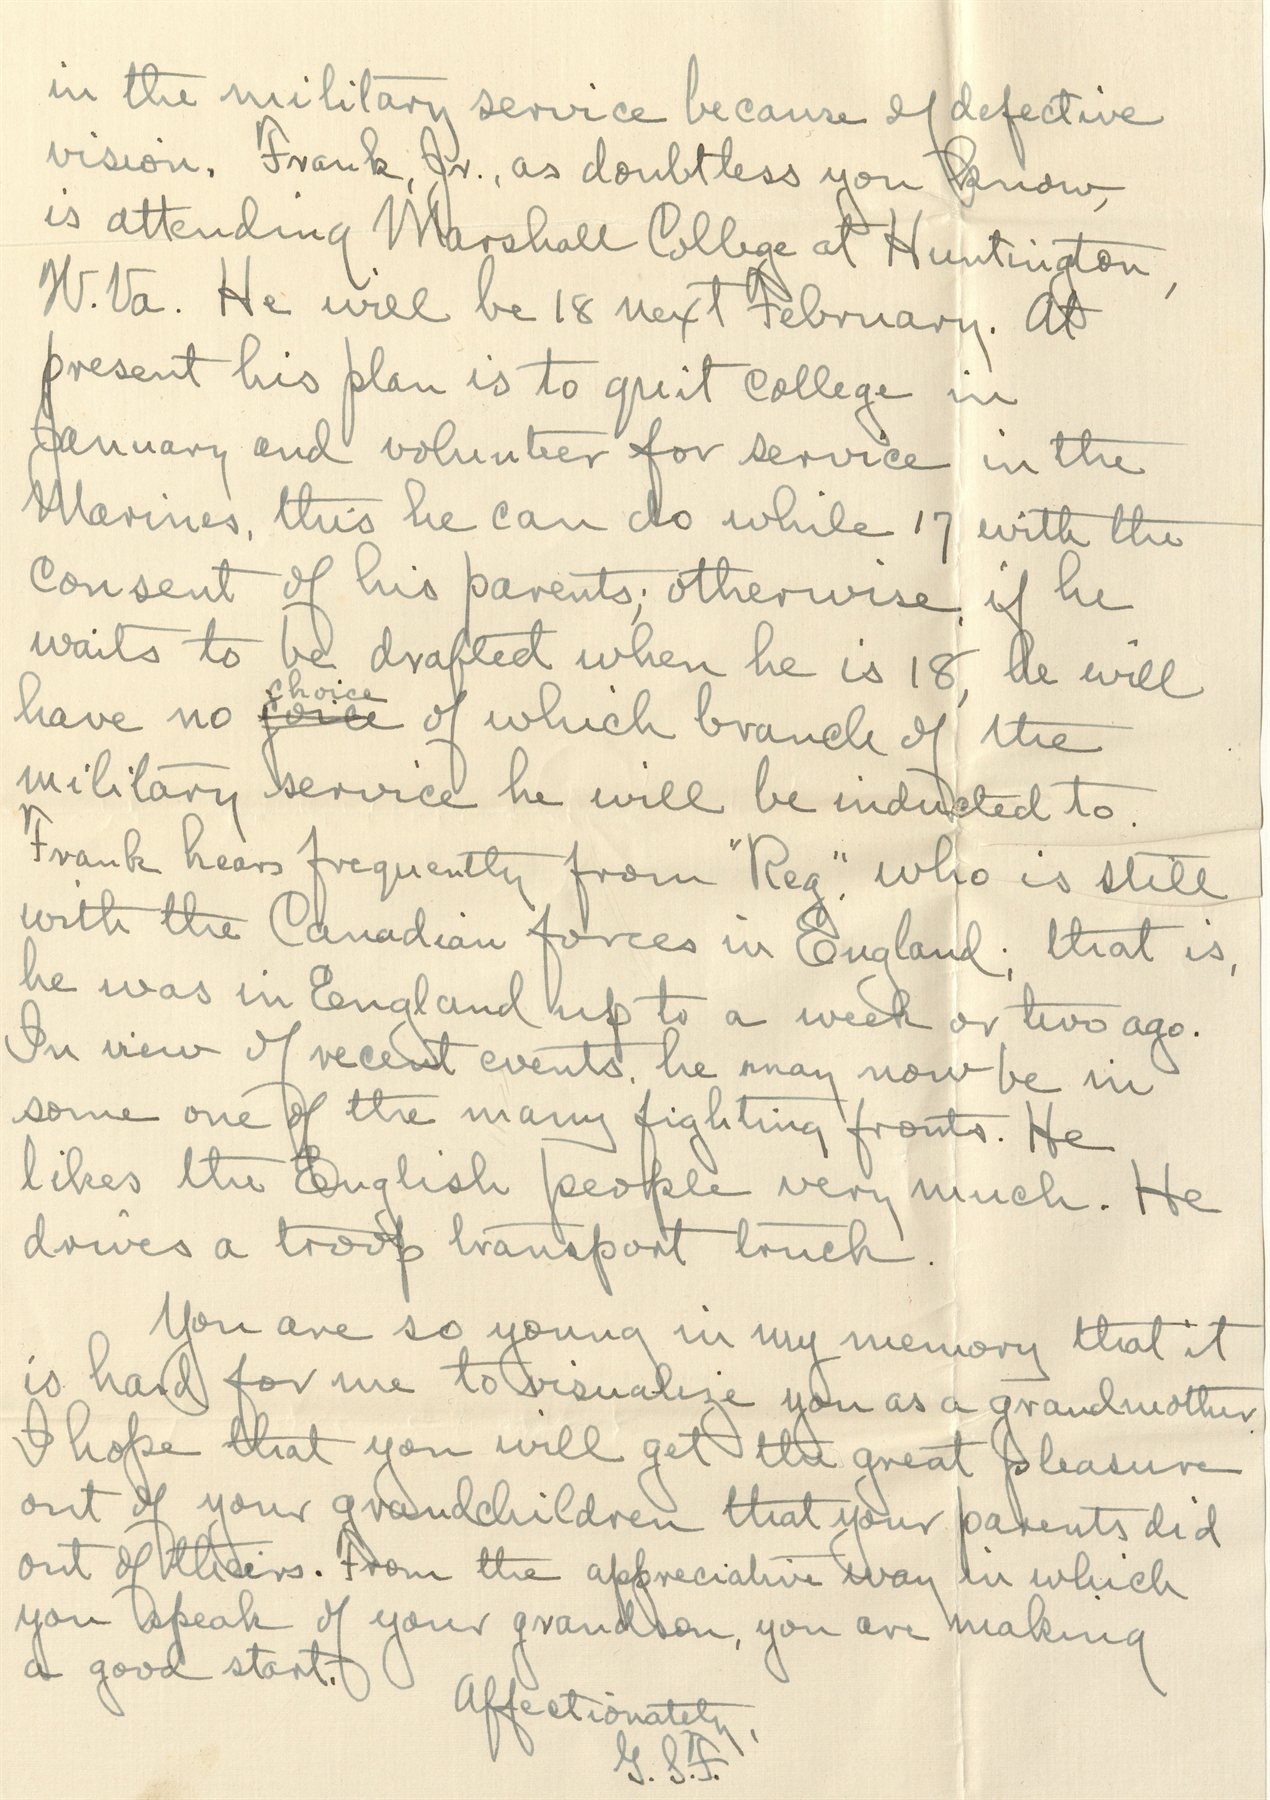 in the military service because of defective
vision. Frank, Jr., as doubtless you know,
is attending Marshall College at Huntington,
W. Va. He will be 18 next February. At
present his plan is to quit college in
January and volunteer for service in the
Marines, this he can do while 17 with the
consent of his parents; otherwise, if he
waits to be drafted when he is 18, he will
choice
have no joice of which branch of the
military service he will be inducted to.
Frank hears frequently from "Reg". who is still
with the Canadian forces in England; that is,
he was in England up to a week or two ago.
In view of recent events, he may now be in
some one of the many fighting fronts. He
likes the English people very much. He
drives a troop transport truck.
You are so young in my memory that it
is hard for me to visualize you as a grandmother.
I hope that you will get the great pleasure
out of your grandchildren that your parents did
out of theirs. From the appreciative way in which
you speak of your grandson, you are making
a good start.
Affectionately,
G. S. F.